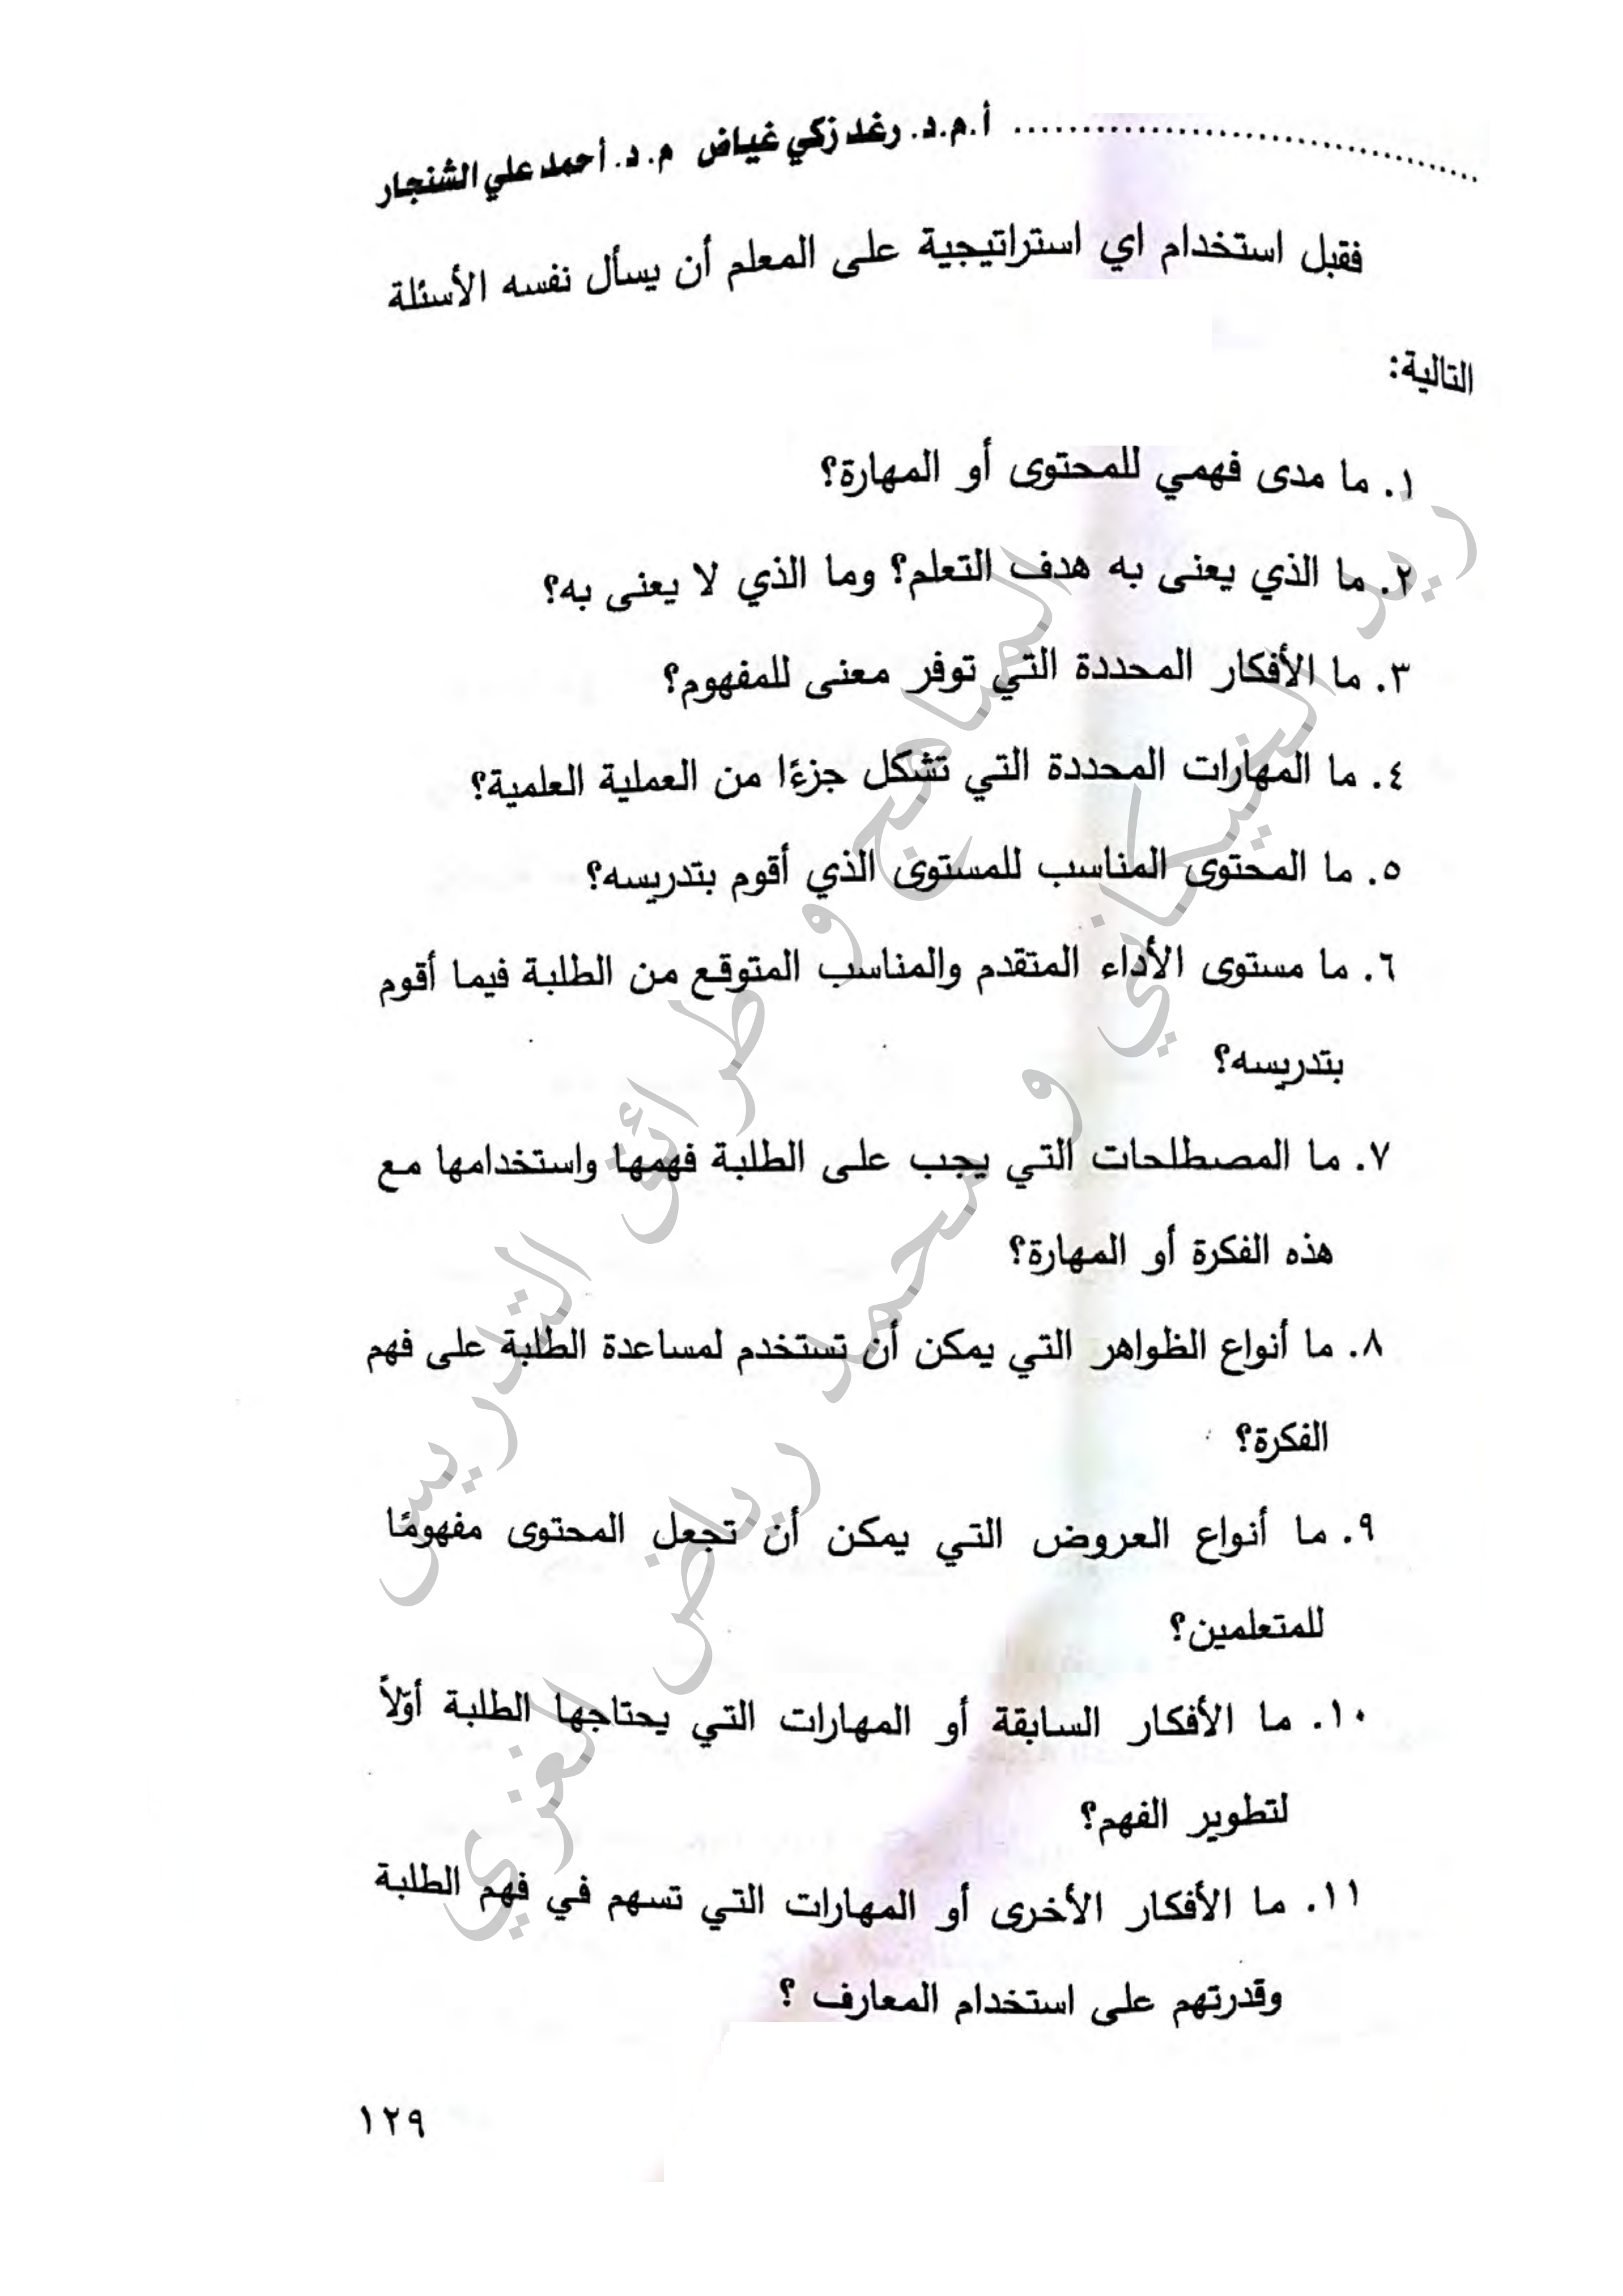 أ.م.د. رغد زكي غياض م.د. أحمد علي الشنجار
فقبل استخدام اي استراتيجية على المعلم أن يسأل نفسه الأسئلة
التالية:
١. ما مدى فهمي للمحتوى أو المهارة؟
٢. ما الذي يعنى به هدف التعلم؟ وما الذي لا يعنى به؟
٣. ما الأفكار المحددة التي توفر معنى للمفهوم؟
٤. ما المهارات المحددة التي تشكل جزءًا من العملية العلمية؟
٥. ما المحتوى المناسب للمستوى الذي أقوم بتدريسه؟
٦. ما مستوى الأداء المتقدم والمناسب المتوقع من الطلبة فيما أقوم
بتدريسه؟
٧. ما المصطلحات التي يجب على الطلبة فهمها واستخدامها مع
هذه الفكرة أو المهارة؟
٨. ما أنواع الظواهر التي يمكن أن تستخدم لمساعدة الطلبة على فهم
الفكرة؟
٩. ما أنواع العروض التي يمكن أن تجعل المحتوى مفهومًا
للمتعلمين؟
١٠. ما الأفكار السابقة أو المهارات التي يحتاجها الطلبة أوّلاً
لتطوير الفهم؟
١١. ما الأفكار الأخرى أو المهارات التي تسهم في فهم الطلبة
وقدرتهم على استخدام المعارف ؟
١٢٩
المناهج و طرائق التدريس
و محمد رياض الغزي